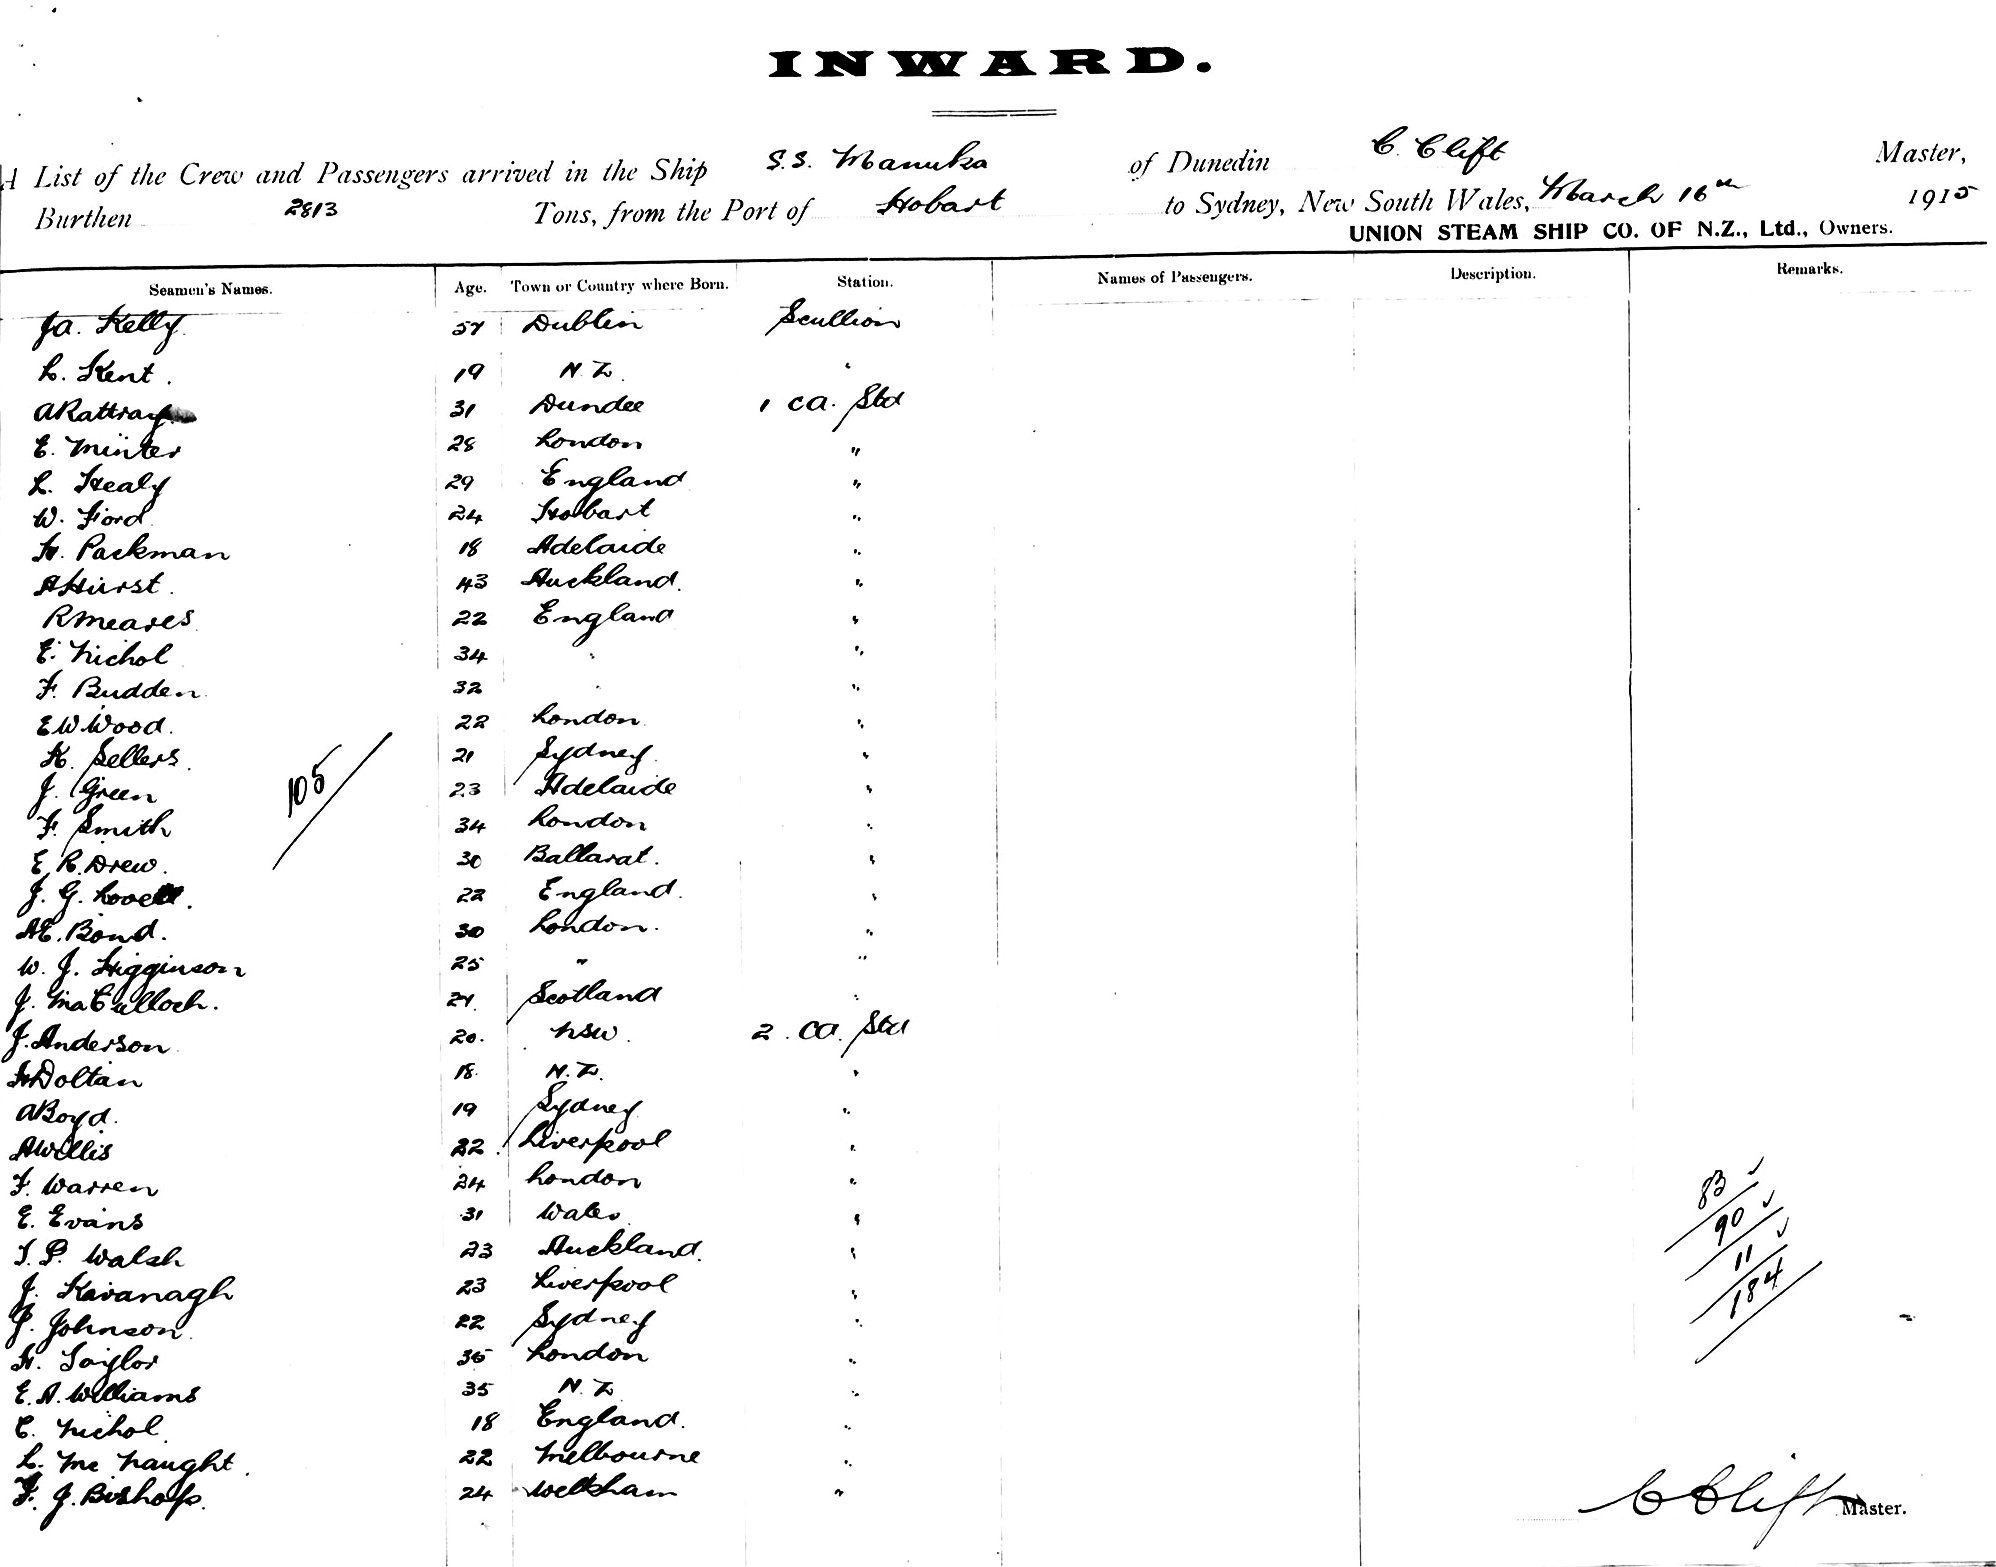 INWARD.
A List of the Crew and Passengers arrived in the Ship S.S. Manuka of Dunedin C. Clift Master,
Burthen 2813 Tons, from the Port of Hobart to Sydney, New South Wales, March 16th 1915
UNION STEAM SHIP CO. OF N.Z., Ltd., Owners.
Seamen's Names. Age. Town or Country where Born. Station. Names of Passengers. Description. Remarks.
Ja. Kelly 57 Dublin Scullion
L. Kent. 19 N.Z. "
A Rattray 31 Dundee 1 ca. Std
E. Minter 28 London "
L. Healy 29 England "
W. Ford 24 Hobart "
H. Packman 18 Adelaide "
A Hurst. 43 Auckland. "
R Meares 22 England "
E. Nichol 34 " "
F. Budden. 32 " "
E W Wood. 22 London "
H. Sellers. 21 Sydney "
J. Green 23 Adelaide "
105
F. Smith 34 London "
E. R. Drew. 30 Ballarat. "
J. G. Lovell. 22 England. "
AE. Bond. 30 London. "
W. J. Higginson 25 " "
J. MaCulloch. 21 Scotland "
J. Anderson 20. NSW. 2. ca. Std
H Doltan 18. N.Z. "
A Boyd. 19 Sydney "
A Willis 22. Liverpool "
F. Warren 24 London "
E. Evans 31 Wales "
T. P. Walsh 23 Auckland. "
J. Kavanagh 23 Liverpool "
P. Johnson. 22 Sydney "
H. Taylor 36 London "
E. A. Williams 35 N.Z "
C. Nichol 18 England. "
L. Mc Naught. 22 Melbourne "
F. J. Bishop. 24 "
83
90
11
184
C Clift Master.